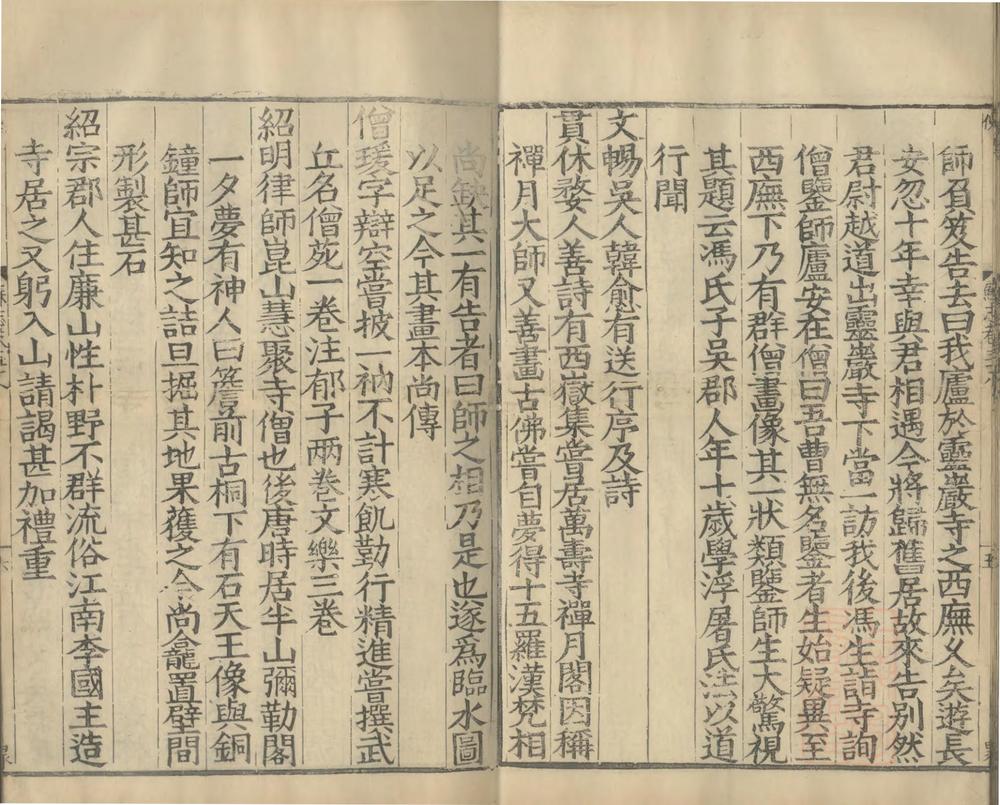 師負笈告去曰我廬於靈巖寺之西廡久矣遊長
安忽十年幸與君相遇今將歸舊居故來告别然
君尉越道出靈巖寺下當一訪我後馮生詣寺詢
僧鑒師廬安在僧曰吾曹無名鑒者生始疑異至
西廡下乃有群僧畫像其一狀類鑒師生大驚視
其題云馮氏子吳郡人年十歲學浮屠氏法以道
行聞
文暢吳人韓愈有送行序及詩
貫休婺人善詩有西嶽集嘗居萬壽寺禪月閣因稱
禪月大師又善畫古佛嘗自夢得十五羅漢梵相
尚缺其一有告者曰師之相乃是也遂爲臨水圖
以足之今其畫本尚傳
僧瑗字辯空嘗披一衲不計寒飢勤行精進嘗撰武
丘名僧苑一卷注郁子兩卷文樂三卷
紹明律師崑山慧聚寺僧也後唐時居半山彌勒閣
一夕夢有神人曰簷前古桐下有石天王像與銅
鐘師宜知之詰旦掘其地果獲之今尚龕置壁間
形製甚石
紹宗郡人住廉山性朴野不群流俗江南李國主造
寺居之又躬入山請謁甚加禮重